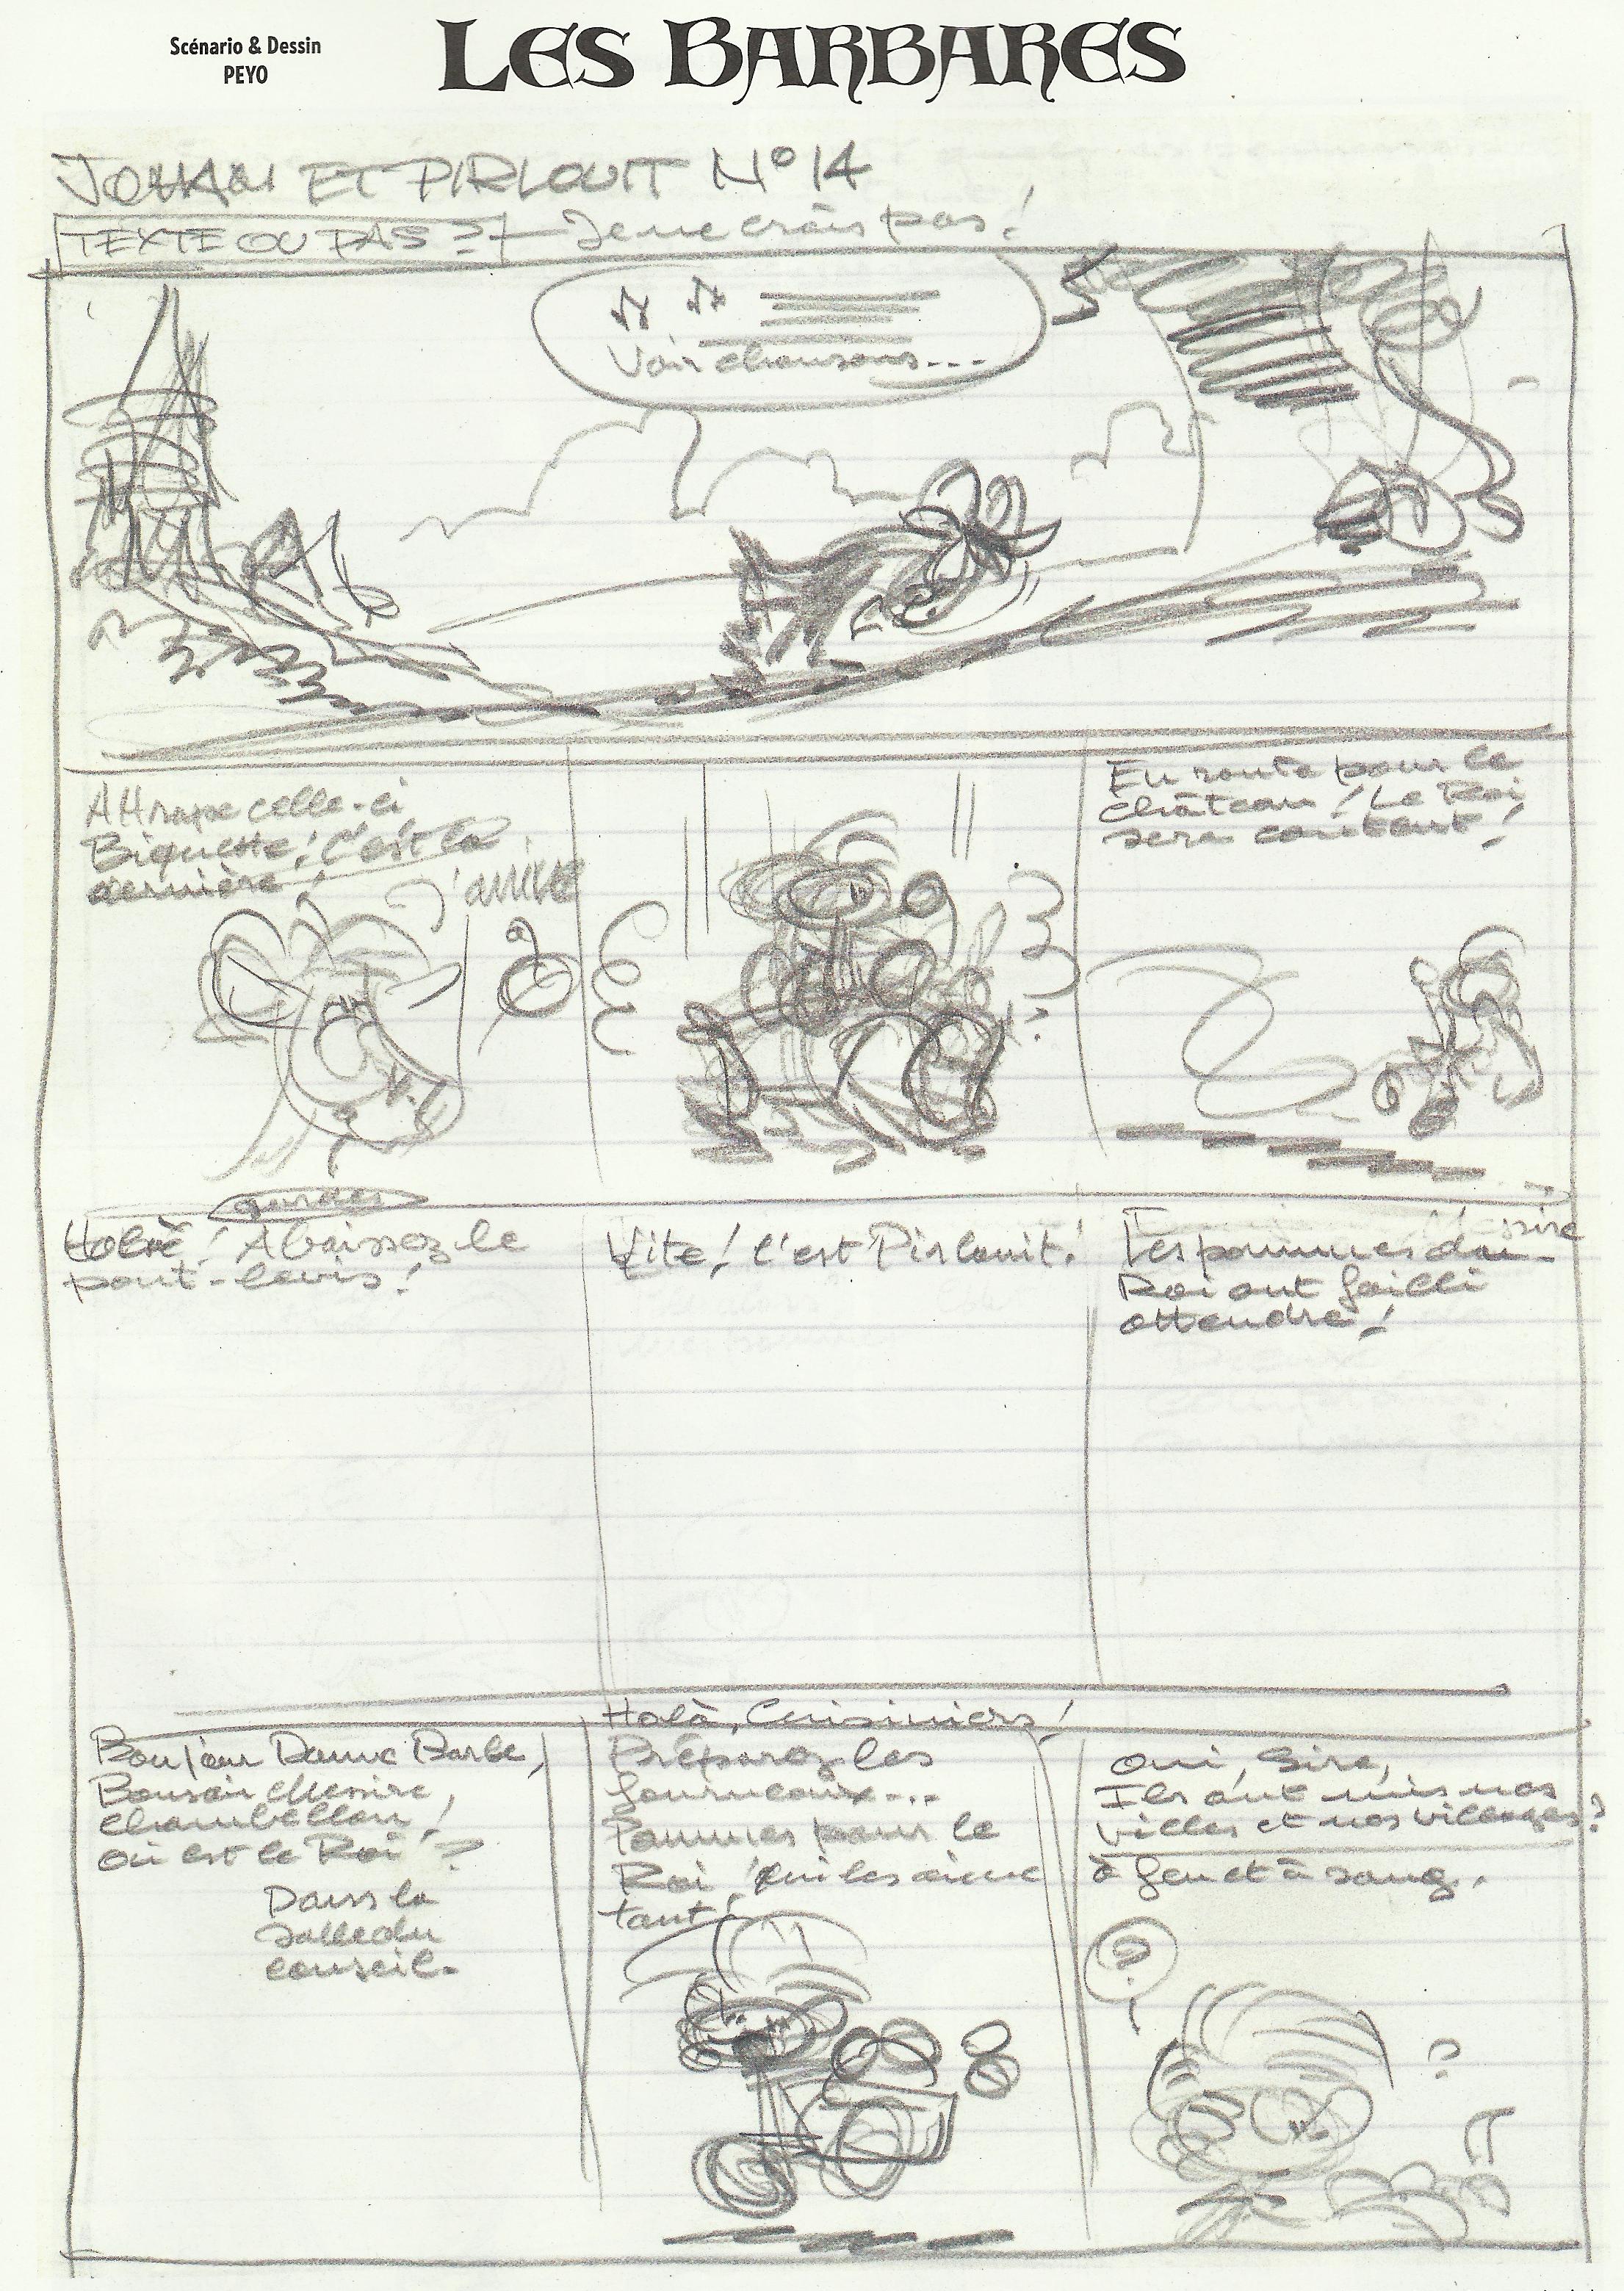 Scénario & Dessin
PEYO
LES BARBARES
JOHAN ET PIRLOUIT N° 14
TEXTE OU PAS ? Je ne crois pas !
Voir chansons...
Attrape celle-ci
Biquette ! C'est la
dernière !
J'arrive
En route pour le
château ! Le Roi
sera content !
Holà ! Abaissez le
pont-levis !
Vite ! C'est Pirlouit !
Messire
Les pommes du
Roi ont failli
attendre !
Bonjour Dame Barbe,
Bonsoir Messire,
Chambellan !
Où est le Roi ?
Dans la
salle du
conseil.
Holà, Cuisiniers !
Préparez les
fourneaux...
Pommes pour le
Roi ! Qui les aime
tant !
Oui, Sire,
Ils ont mis nos
villes et nos villages
à feu et à sang.
?
?
?